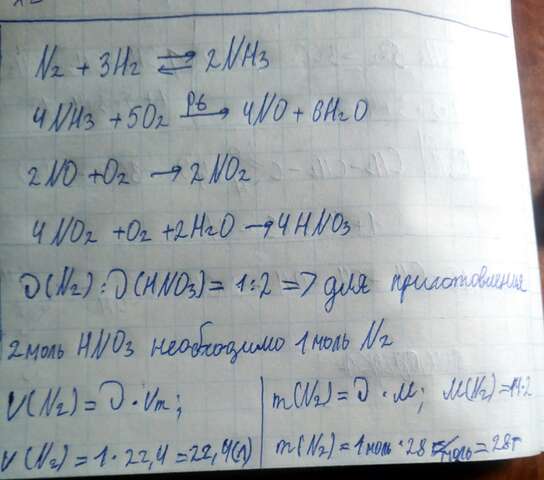 N2 + 3H2 ⇌ 2NH3
4NH3 + 5O2 Pt→ 4NO + 6H2O
2NO + O2 → 2NO2
4NO2 + O2 + 2H2O → 4HNO3
ν(N2) : ν(HNO3) = 1:2 => для приготовления
2 моль HNO3 необходимо 1 моль N2
V(N2) = ν · Vm;
m(N2) = ν · M; M(N2) = 14·2
V(N2) = 1 · 22,4 = 22,4(л)
m(N2) = 1 моль · 28 г/моль = 28г